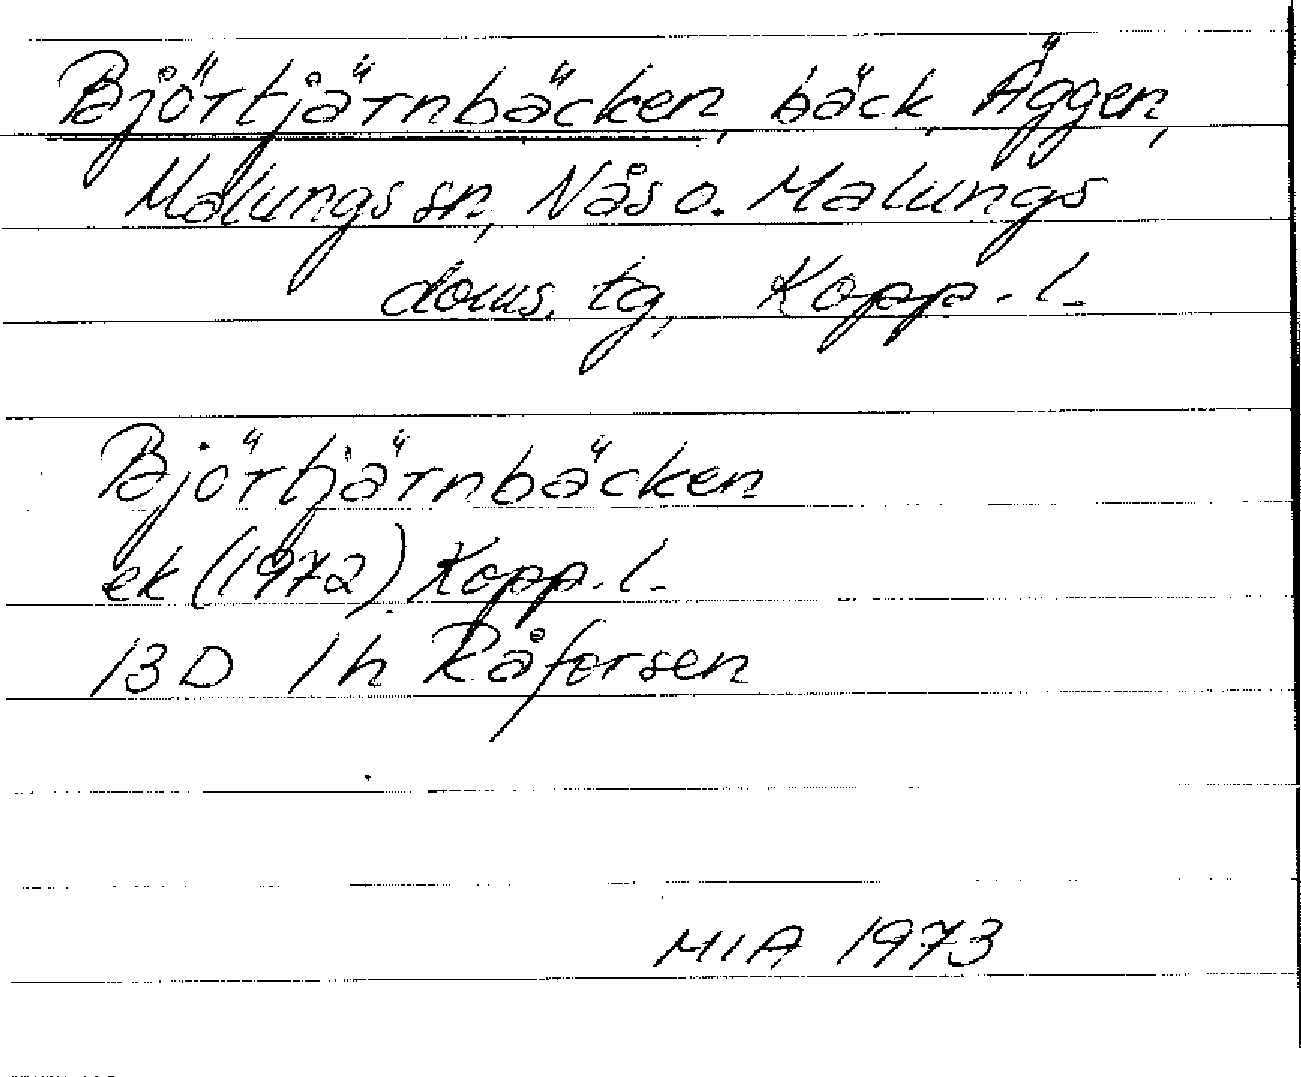 Björtjärnbäcken, bäck, Äggen,
Malungs sn, Nås o. Malungs
doms. tg, Kopp. l.
Björtjärnbäcken
ek (1972) Kopp. l.
13D 1h Råforsen
MIA 1973